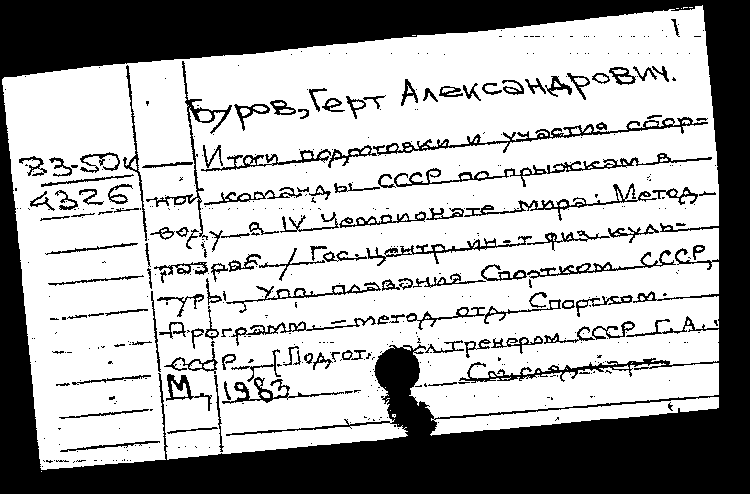 1
Буров, Герт Александрович.
83-50к
4326
Итоги подготовки и участия сбор=
ной команды СССР по прыжкам в
воду в IV Чемпионате мира: Метод.
разраб. / Гос. центр. ин-т физ. куль-
туры, Упр. плавания Спортком. СССР,
Программ.-метод. отд. Спортком.
СССР; [Подгот. тренером СССР Г.А.
М., 1983.
См.след.карт.